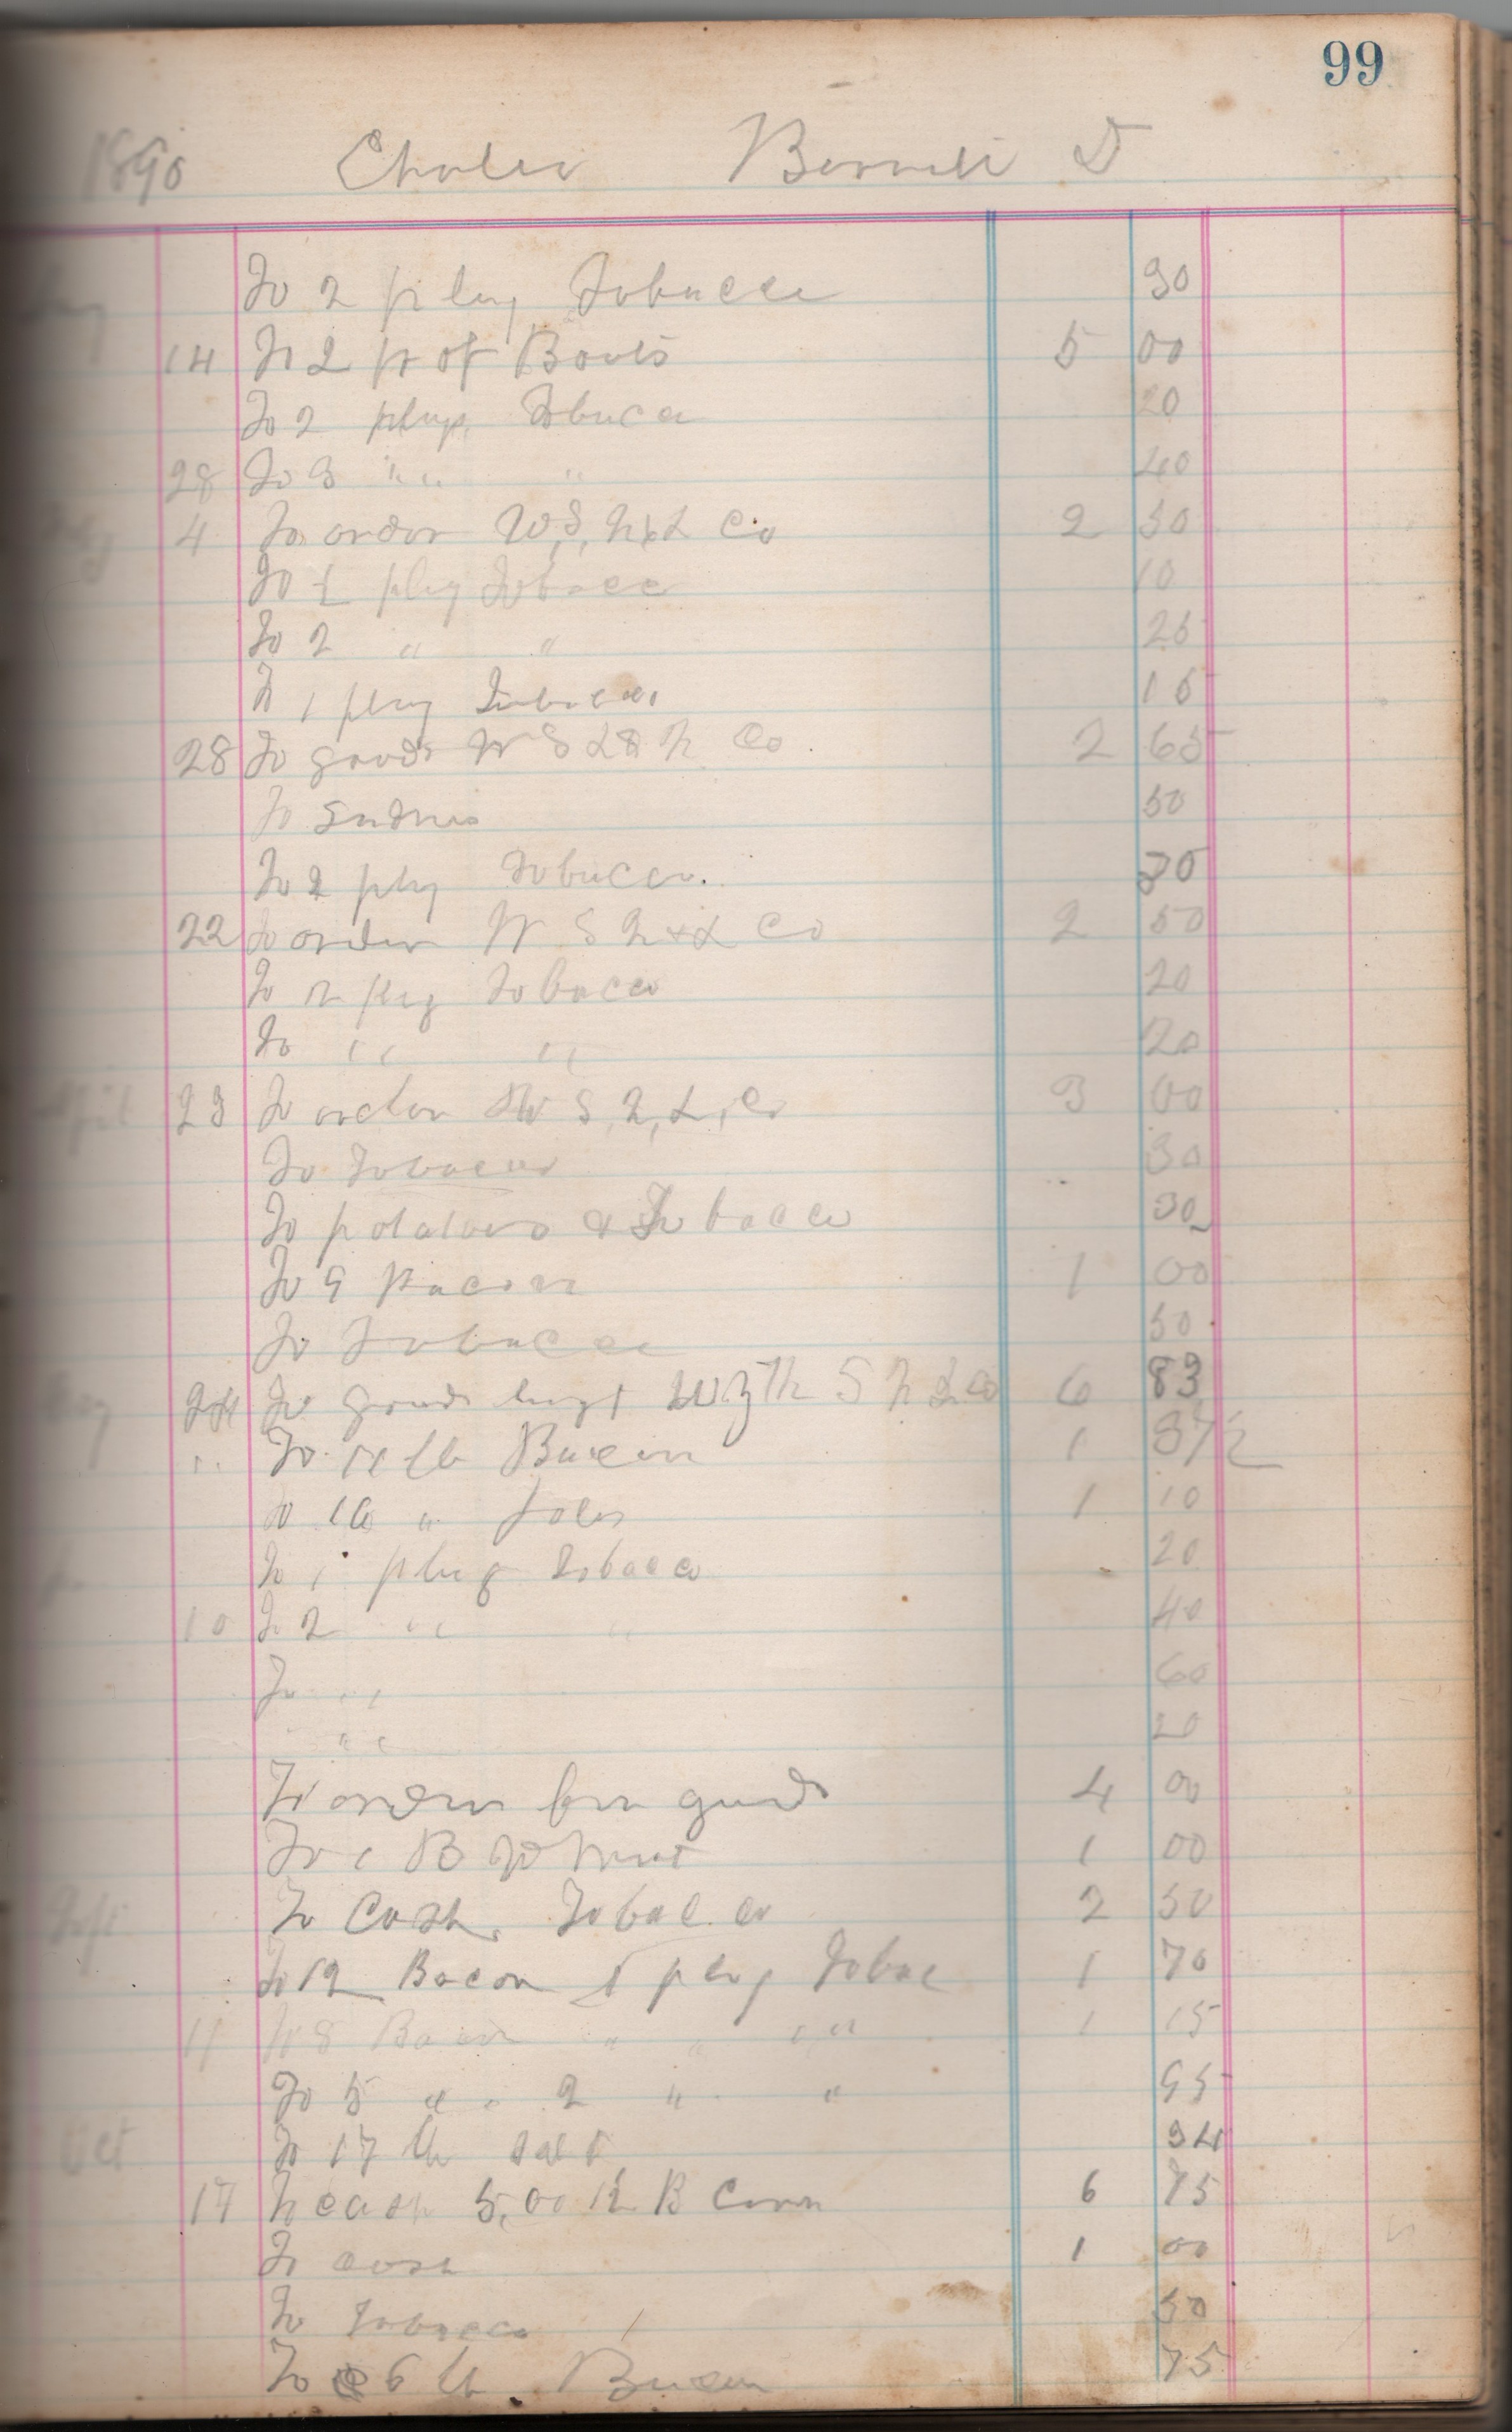 99
1890
To 2 plug Tobacco 30
14 To 2 pr of Boots 5 00
To 2 plugs Tobaco 20
28 To 3 " " " 40
4 To order W, S, & L Co 2 50
To 1 plug Tobacco 10
To 2 " " 25
To 1 plug Tobacco 15
28 To goods W S L & Co 2 65
To Sundries 50
To 2 plug Tobacco.
22 To order W S & L Co 2 50
To 2 plug Tobacco 20
To " " 20
23 To order W S, L, Co 3 00
To Tobacco 30
To potatoes & Tobacco 30
To 9 Bacon 1 00
To Tobacco 50
24 To goods S Co 6 83
" To 11 lb Bacon 1 37½
To 10 " 1 10
To 1 plug Tobacco 20
10 To 2 " " 40
To " 60
" 20
To order for goods 4 00
To 1 B Wheat 1 00
To Cash. Tobacco 2 50
To 12 Bacon 1 plug Tobac 1 70
11 To 8 Bacon " " " 1 15
To 5 " " 2 " " 95
Oct To 17 lb salt 34
17 To cash 5,00 B Corn 6 75
To cash 1 00
To Tobacco 50
To 6 lb Bacon 75